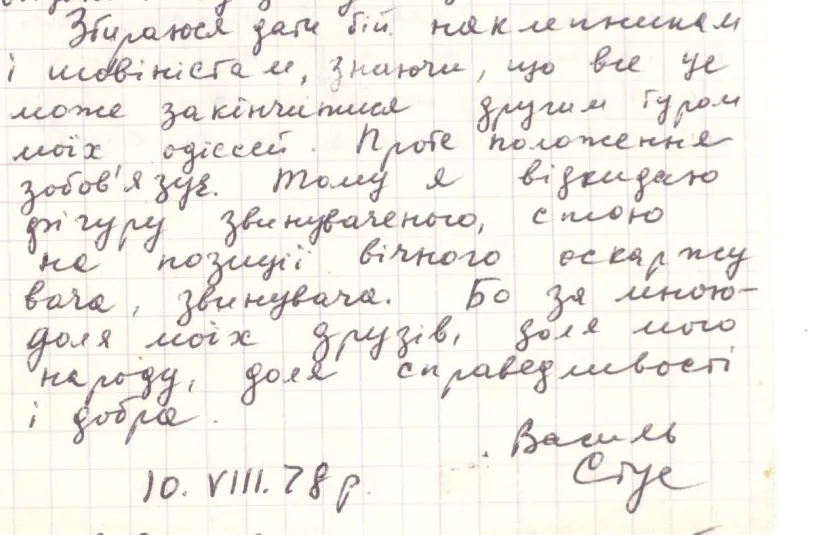 Збираюся дати бій наклепникам
і шовіністам, знаючи, що все це
може закінчитися другим туром
моїх одіссей. Проте положення
зобов'язує. Тому я відкидаю
фігуру звинуваченого, стою
на позиції вічного оскаржу
вача, звинувача. Бо за мною-
доля моїх друзів, доля мого
народу, доля справедливості
і добра.
Василь
Стус
10. VIII. 78 р.